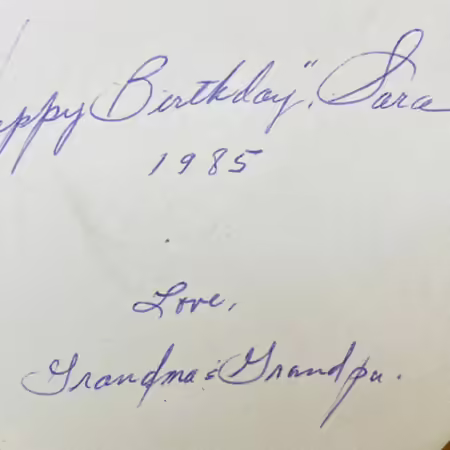 appy Birthday", Sara
1985
Love,
Grandma & Grandpa.